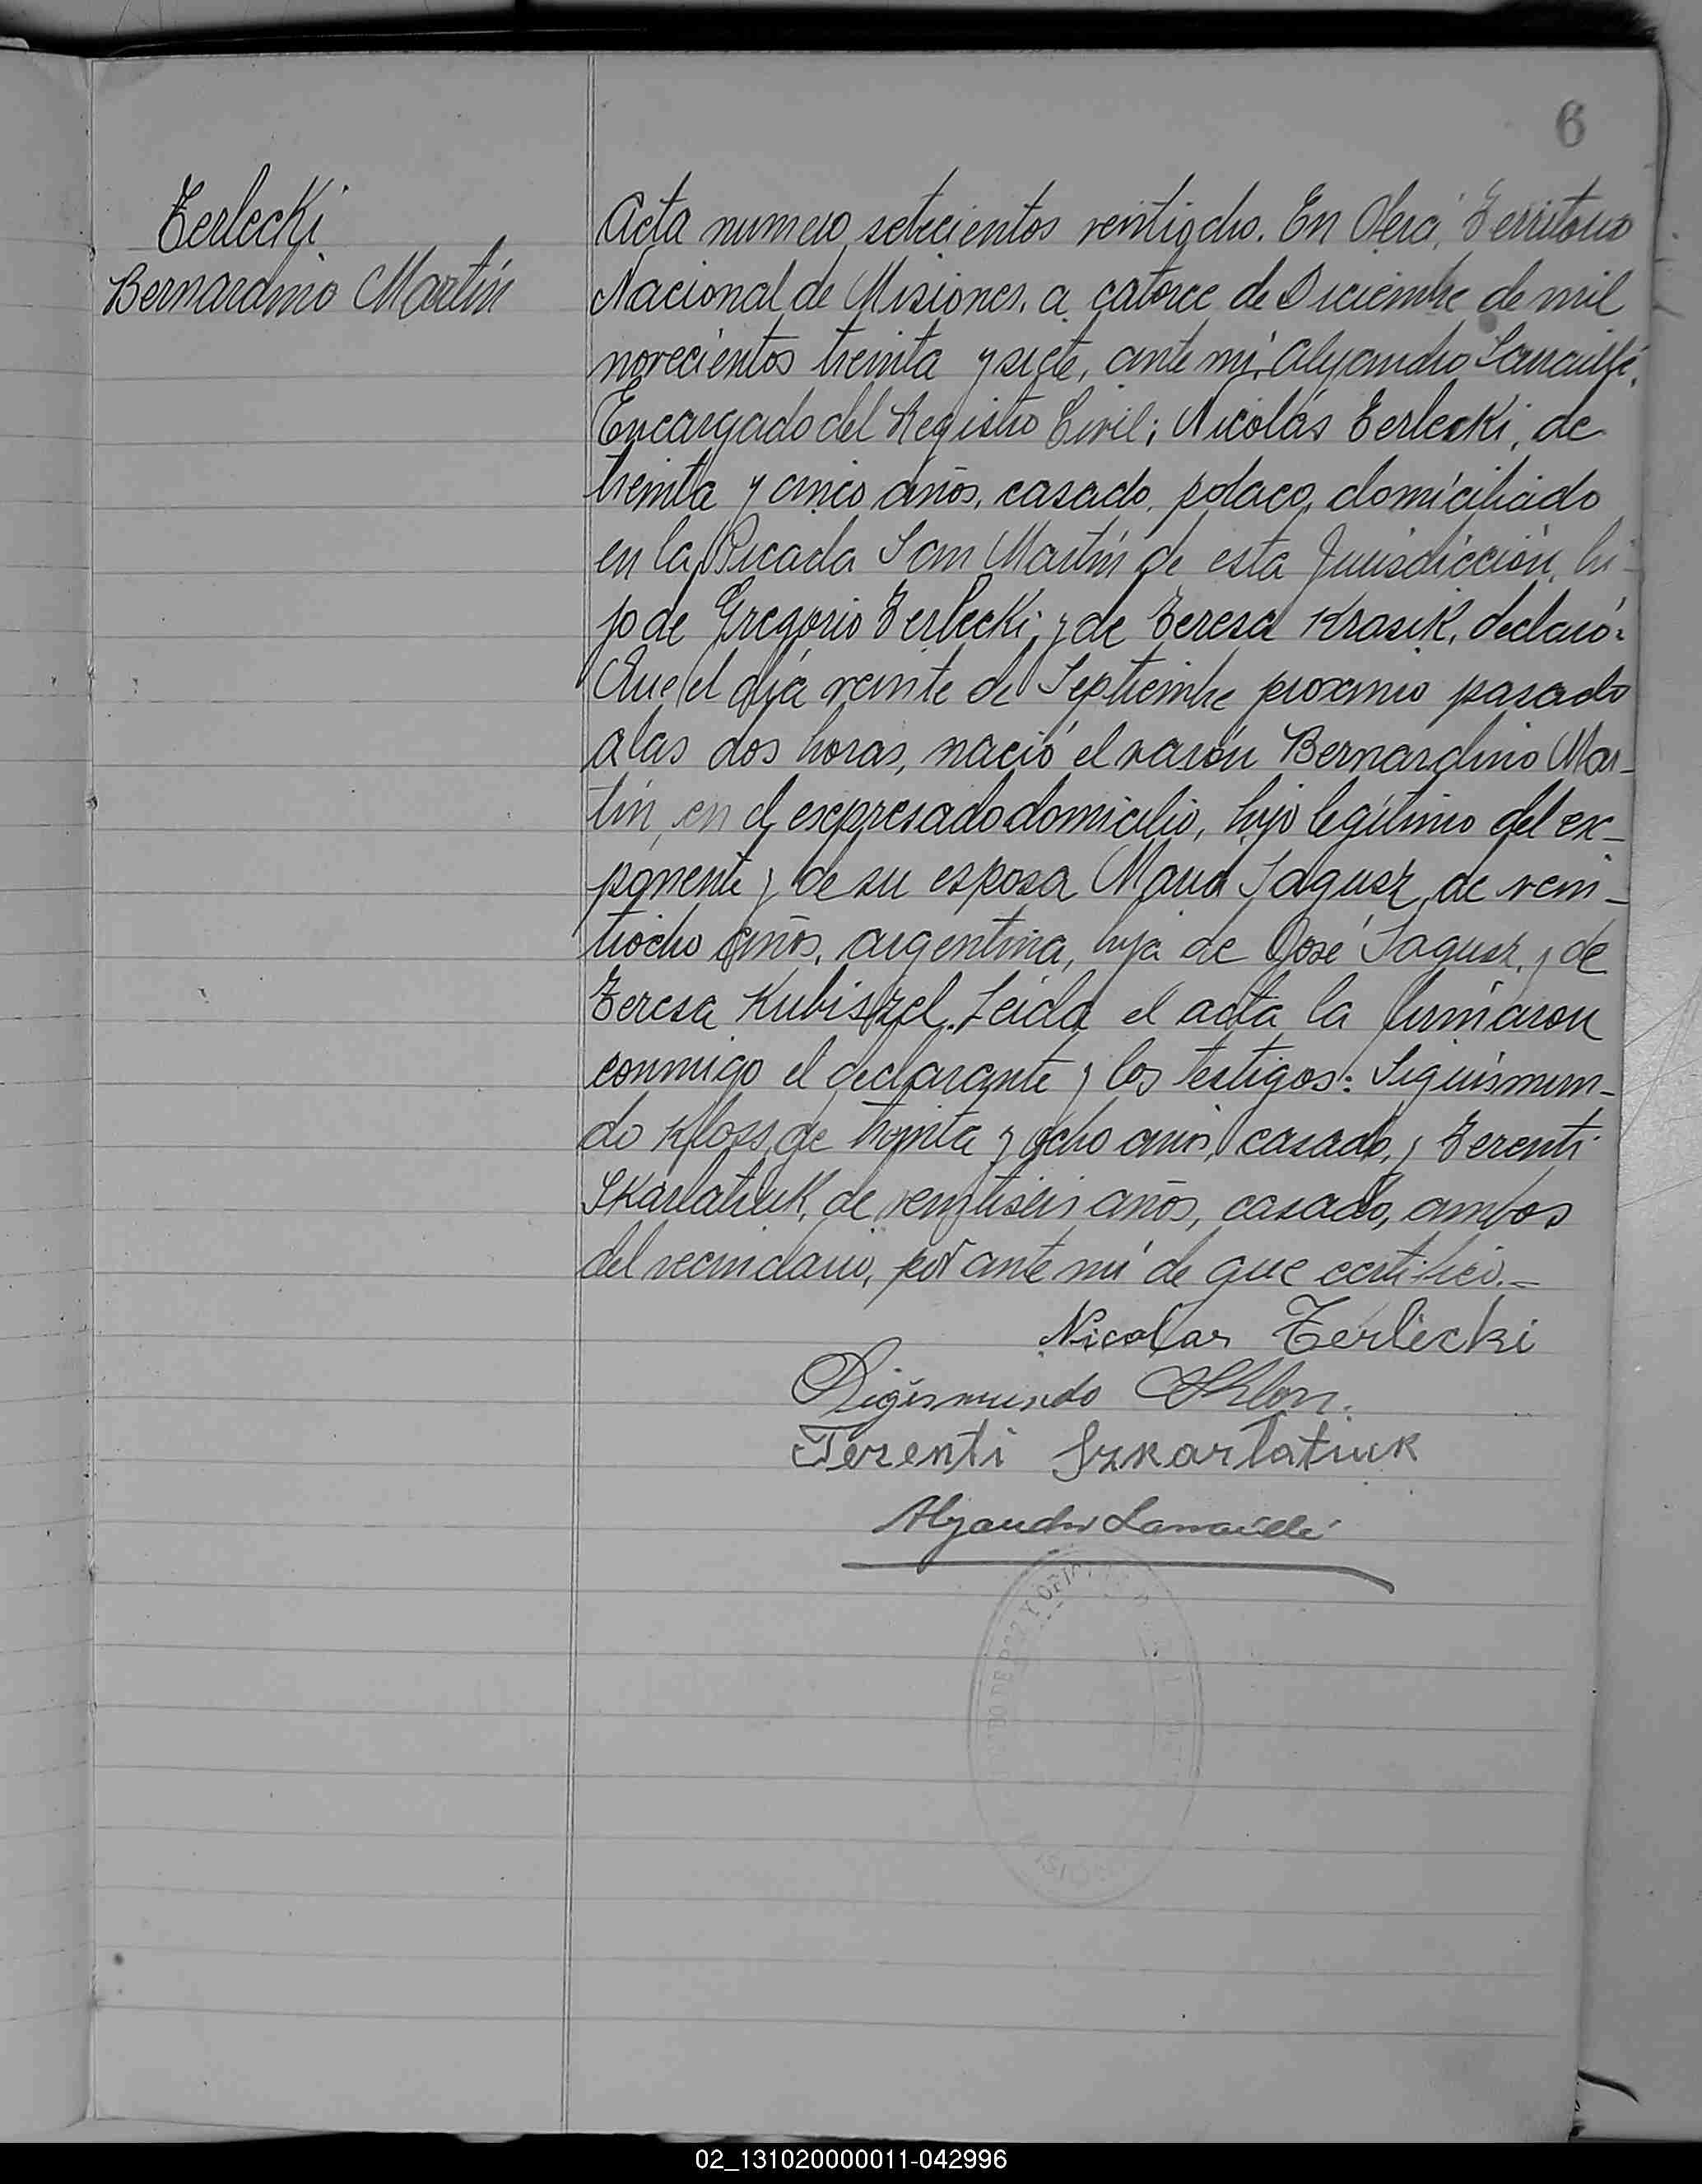 6
Terlecki
Bernardino Martín
Acta numero setecientos veintiocho. En Oberá, Territorio
Nacional de Misiones, a catorce de Diciembre de mil
novecientos treinta y siete, ante mí, Alejandro Larraillé,
Encargado del Registro Civil; Nicolás Terlecki, de
treinta y cinco años, casado, polaco, domiciliado
en la Picada San Martín de esta Jurisdicción, hi-
jo de Gregorio Terlecki, y de Teresa Krasik, declaró:
Que el día veinte de Septiembre proximo pasado
a las dos horas, nació el varón Bernardino Mar-
tín, en el expresado domicilio, hijo legítimo del ex-
ponente y de su esposa Maria Jagusz, de vein-
tiocho años, argentina, hija de José Jagusz, y de
Teresa Kubiszel. Leida el acta la firmaron
conmigo el declarante y los testigos: Siguismun-
do Kloss, de treinta y ocho años, casado, y Terenti
Skarlatiuk, de veintiseis años, casado, ambos
del vecindario, por ante mí de que certifico.=
Nicolas Terlecki
Sigismundo
Terenti Szkarlatiuk
Alejandro Larraillé
02_131020000011-042996